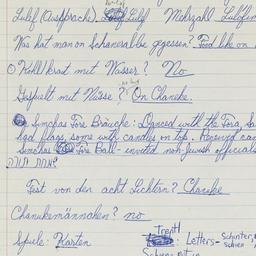 Lulef (Aussprache). Lulef Mehrzahl Lulefim
Was hat man on Schanerabbe gegessen? Food like on
Kohl/kraut mit Wasser? No
Gefüllt mit Nüsse? On Chanike.
Simches Tore Bräuche: Danced with the Tora,
had flags, some with candles on top. Received can
Simches Tore Ball - invited non Jewish officials
שמחת תורה
Fest von den acht Lichtern? Chanike
Chanikemännchen? no
Spiele: Karsten Trentl
: Letters - Schinter,